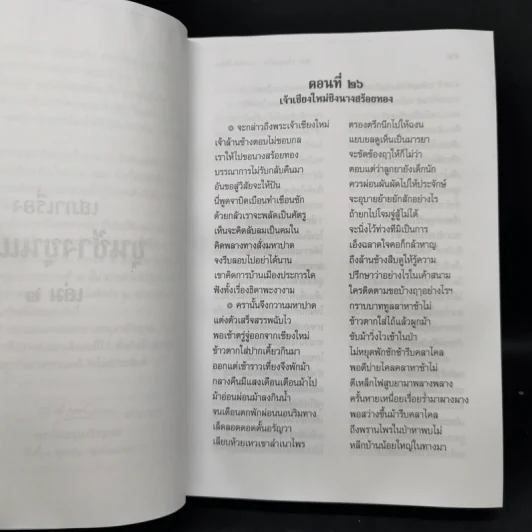 ตอนที่ ๒๖
เจ้าเชียงใหม่ชิงนางสร้อยทอง
๏ จะกล่าวถึงพระเจ้าเชียงใหม่ ตรองตรึกนึกไปให้ฉงน
เจ้าล้านช้างตอบไม่ชอบกล แยบยลดูเห็นเป็นมารยา
เราให้ไปขอนางสร้อยทอง จะขัดข้องฤๅให้ก็ไม่ว่า
บรรณาการไม่รับกลับคืนมา ตอบแต่ว่าลูกยายังเด็กนัก
อันขอสู่วิสัยจะให้ปัน ควรผ่อนผันผัดไปให้ประจักษ์
นี่พูดจาบิดเบือนทำเชือนชัก จะอุบายย้ายยักสักอย่างไร
ด้วยกลัวเราจะพลัดเป็นศัตรู ถ้ายกไปโจมจู่สู้ไม่ได้
เห็นจะคิดลับลมเป็นคมใน จะนิ่งไว้ท่วงทีมิเป็นการ
คิดพลางทางสั่งมหาปาด เอ็งฉลาดใจคอก็กล้าหาญ
จงรีบลอบไปอย่าได้นาน ถึงล้านช้างสืบดูให้รู้ความ
เขาคิดการบ้านเมืองประการใด ปรึกษาว่าอย่างไรในเค้าสนาม
ฟังทั้งเรื่องธิดาพะงางาม ใครติดตามชอบบ้างฤๅอย่างไรฯ
๏ ครานั้นจึงกวานมหาปาด กราบบาททูลลาหาช้าไม่
แต่งตัวเสร็จสรรพฉับไว ข้าวตากใส่ไถ้แล้วผูกม้า
พอเช้าตรู่จู่ออกจากเชียงใหม่ ขับม้าวิ่งไวเข้าในป่า
ข้าวตากใส่ปากเคี้ยวกินมา ไม่หยุดพักชักช้ารีบคลาไคล
ออกแต่เช้าราวเที่ยงจึงพักม้า พอตีบ่ายไคลคลาหาช้าไม่
กลางคืนมีแสงเดือนเตือนม้าไป ตีเหล็กไฟสูบยามาพลางพลาง
ม้าอ่อนผ่อนม้าลงกินน้ำ ครั้นหายเหนื่อยเรื่อยร่ำมาผางผาง
จนเดือนตกพักผ่อนนอนริมทาง พอสว่างขึ้นม้ารีบคลาไคล
เล็ดลอดดอดดั้นอรัญวา ถึงพรานไพรในป่าหาพบไม่
เลียบห้วยเหวเขาลำเนาไพร หลีกบ้านน้อยใหญ่ในทางมา